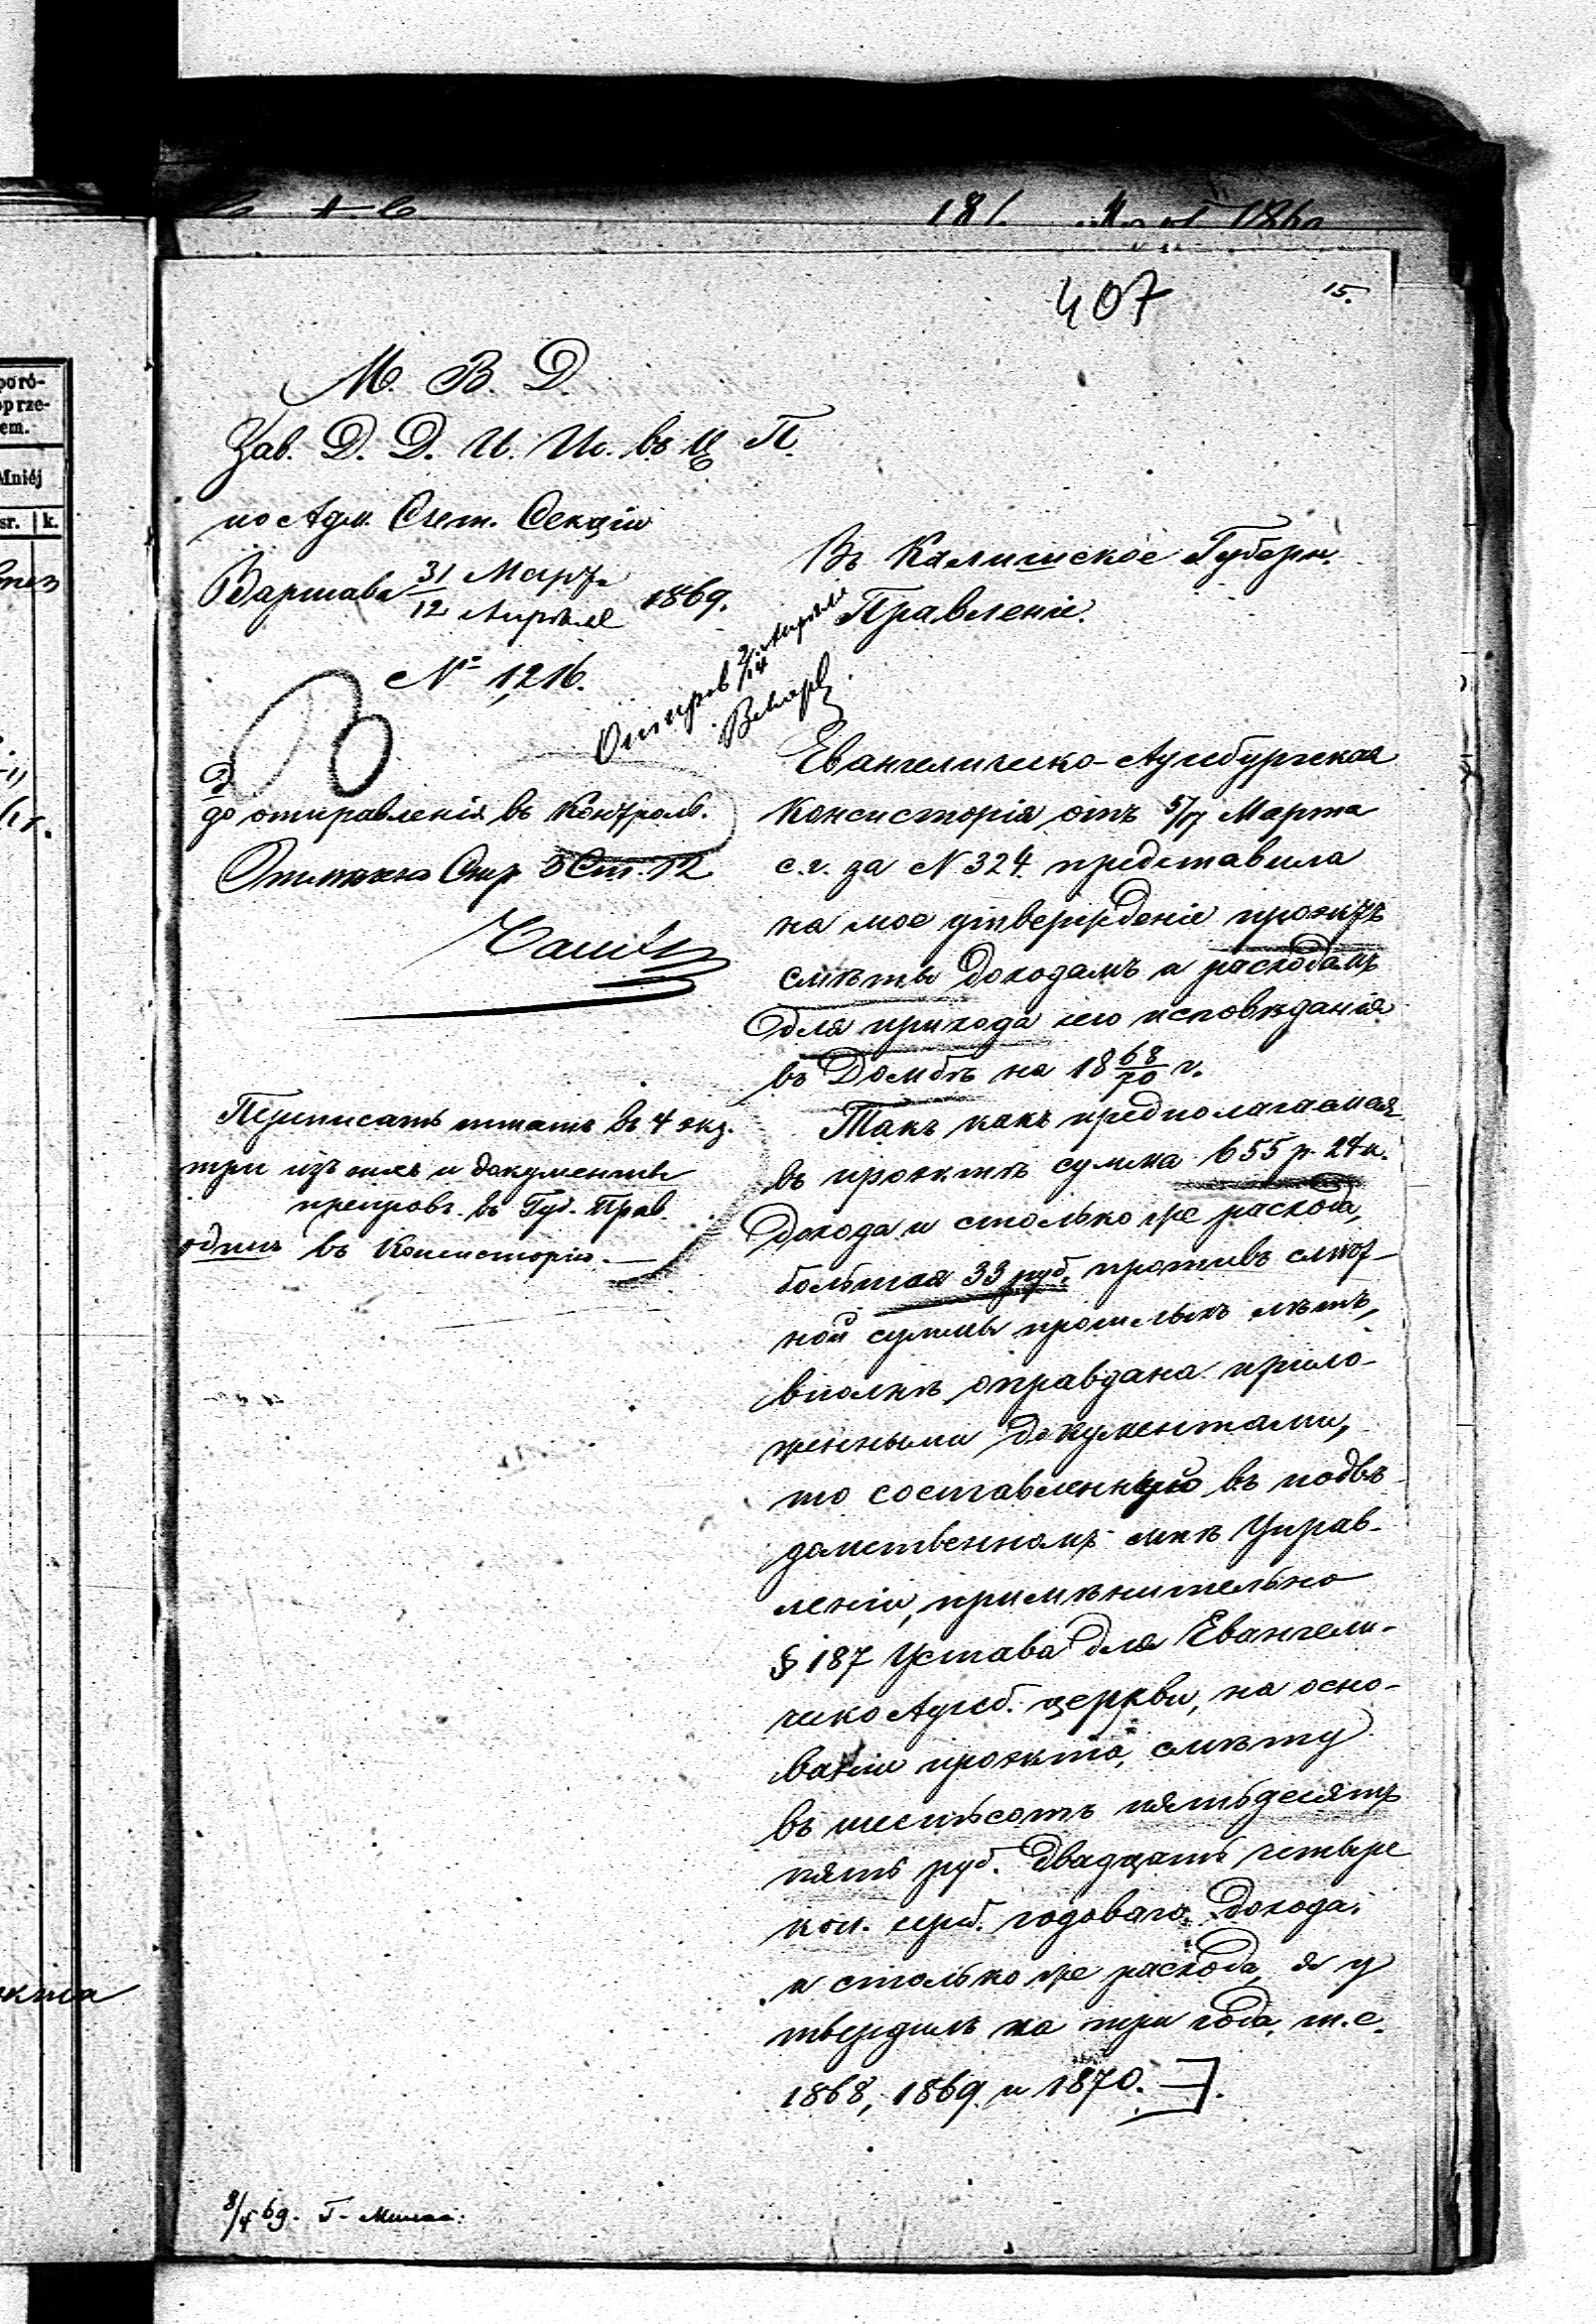 181.
407
15.
М. В. Д.
Зав. Д. Д. И. И. въ Ц. П.
по Адм. Счет. Секціи
Варшава 31 Марта
12 Апрѣля 1869.
№ 1,216.
Отправ 2/14 Апрѣля
до отправленія въ Контроль.
Стр. 5 Ст. 12
Переписать штатъ въ 4 экз.
три изъ нихъ и документы
препров. въ Губ. Прав.
одинъ въ Консисторію.—
Въ Калишское Губерн.
Правленіе.
Евангелическо-Аугсбургская
Консисторія отъ 5/17 Марта
с.г. за N 324 представила
на мое утвержденіе проэктъ
смѣты доходамъ и расходамъ
для прихода сего исповѣданія
въ Домбѣ на 18 68/70 г.
Такъ какъ предполагаемая
въ проэктѣ сумма 655 р. 24 к.
дохода и столько же расхода,
большая 33 руб. противъ смѣт-
ной суммы прошлыхъ лѣтъ,
вполнѣ оправдана прило-
женными документами,
то составленную въ подвѣ-
домственномъ мнѣ Управ-
леніи, примѣнительно
§ 187 Устава для Евангели-
чско Аугсб. церкви, на осно-
ваніи проэкта, смѣту
въ шестьсотъ пятьдесятъ
пять руб. двадцать четыре
коп. сереб. годоваго дохода
и столько же расхода, я у
твердилъ на три года, т.е.
1868, 1869 и 1870.
8/4 69.
poró-
oprze-
em.
Mniéj
sr. k.